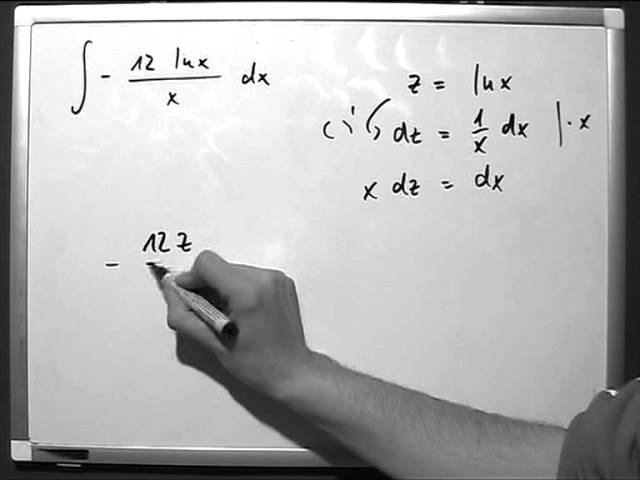 ∫ - 12 ln x / x dx
z = ln x
( )' dz = 1/x dx | · x
x dz = dx
- 12 z